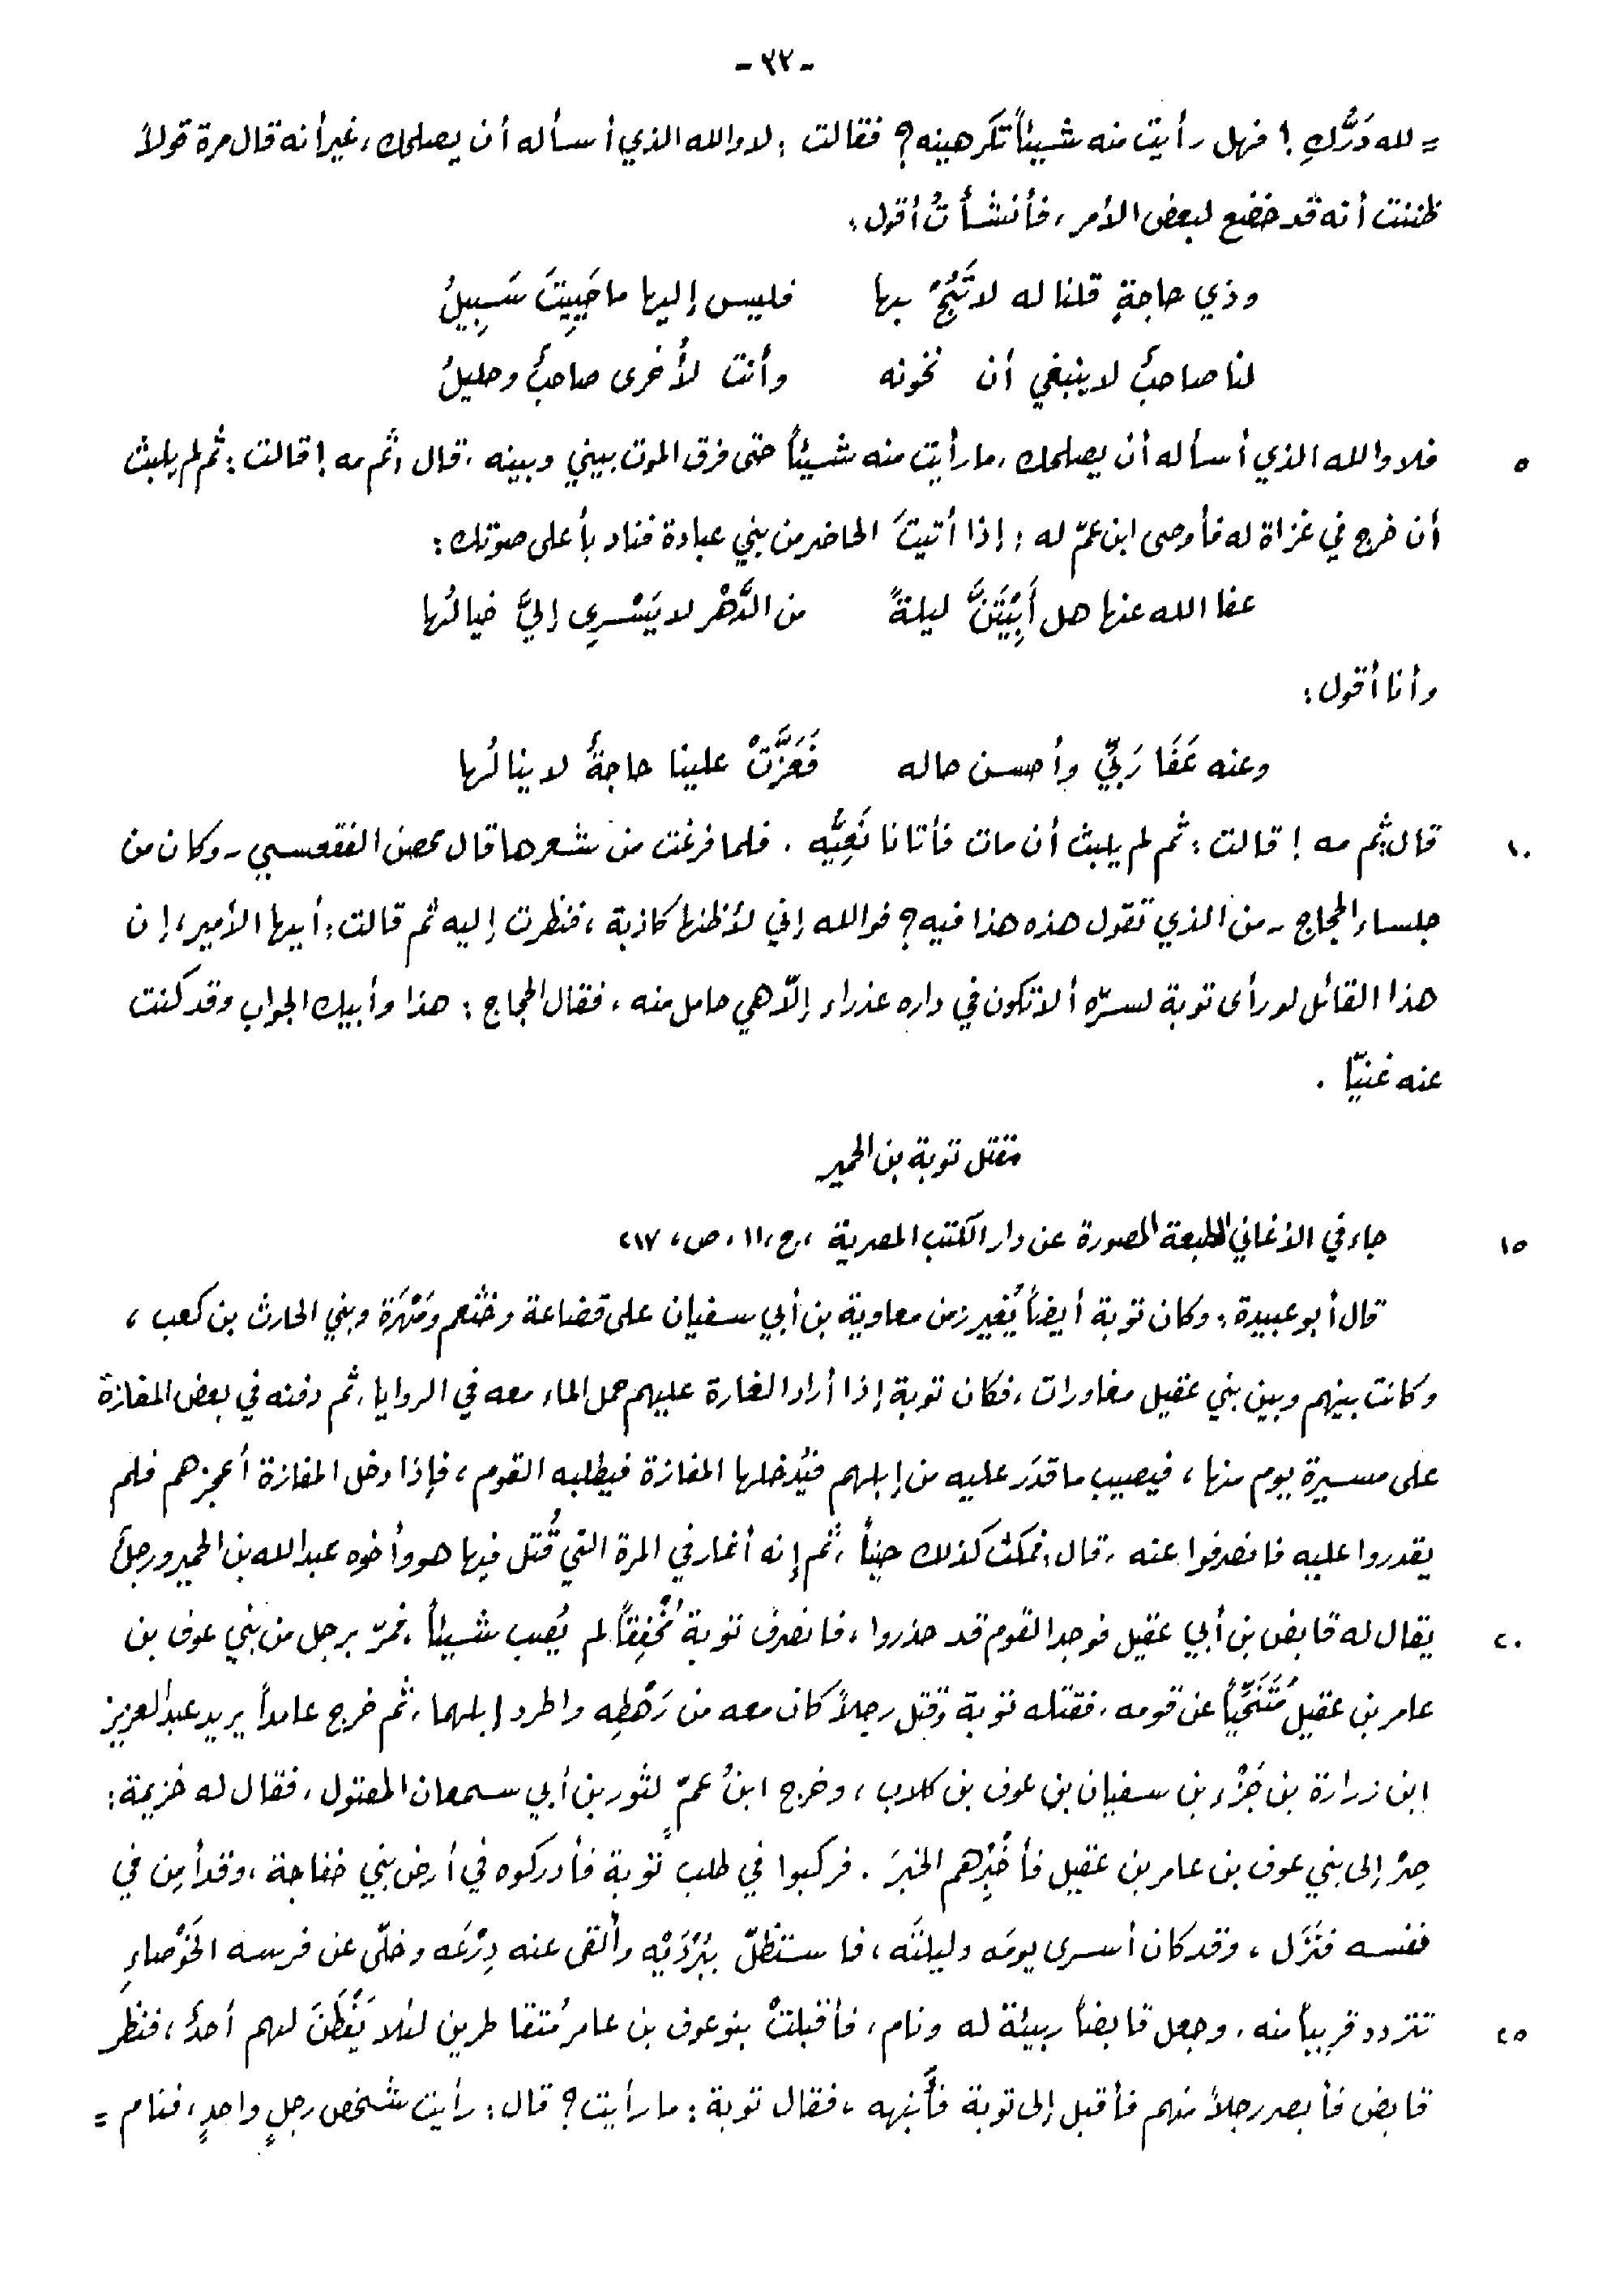 - ٣٢ -
= لله دَرُّكِ ! فهل رأيت منه شيئاً تكرهينه؟ فقالت : لا والله الذي أسأله أن يصلحك ، غير أنه قال مرة قولاً
ظننت أنه قد خضع لبعض الأمر ، فأنشأتُ أقول :
وذي حاجةٍ قلنا له لا تَبُحْ بها فليس إليها ما حَيِيتَ سَبِيلُ
لنا صاحبٌ لا ينبغي أن نخونه وأنت لأُخرى صاحبٌ وحليلُ
٥ فلا والله الذي أسأله أن يصلحك ، ما رأيت منه شيئاً حتى فرق الموت بيني وبينه . قال : ثم مه ! قالت : ثم لم يلبث
أن خرج في غزاة له فأوصى ابن عمّ له : إذا أتيتَ الحاضر من بني عبادة فناد بأعلى صوتك :
عفا الله عنها هل أَبِيْتَنَّ ليلةً من الدَّهْر لا يَسْرِي إليَّ خيالُها
وأنا أقول :
وعنه عَفَا رَبِّي وأحسن حاله فَعَزَّتْ علينا حاجةٌ لا ينالُها
١٠ قال : ثم مه ! قالت : ثم لم يلبث أن مات فأتانا نَعِيُّه . فلما فرغت من شعرها قال محصن الفقعسي - وكان من
جلساء الحجاج - من الذي تقول هذه هذا فيه ؟ فوالله إني لأظنها كاذبة ، فنظرت إليه ثم قالت : أيها الأمير ، إن
هذا القائل لو رأى توبة لسرّه ألا تكون في داره عذراء إلّا هي حامل منه ، فقال الحجاج : هذا وأبيك الجواب وقد كنت
عنه غنيّا .
مقتل توبة بن الحمير
١٥ جاء في الأغاني الطبعة المصورة عن دار الكتب المصرية ، ج ، ١١ ، ص ، ٢١٧
قال أبو عبيدة : وكان توبة أيضاً يُغير زمن معاوية بن أبي سفيان على قضاعة وخثعم ومَهْرَة وبني الحارث بن كعب ،
وكانت بينهم وبين بني عقيل مغاورات ، فكان توبة إذا أراد الغارة عليهم حمل الماء معه في الروايا ، ثم دفنه في بعض المفازة
على مسيرة يوم منها ، فيصيب ما قدَر عليه من إبلهم فيُدخلها المفازة فيطلبه القوم ، فإذا دخل المفازة أعجزهم فلم
يقدروا عليه فانصرفوا عنه . قال : فمكث كذلك حيناً ، ثم إنه أغار في المرة التي قُتل فيها هو وأخوه عبد الله بن الحمير ورجلٌ
٢٠ يقال له قابض بن أبي عقيل فوجد القوم قد حذروا ، فانصرف توبة مُخْفِقاً لم يُصِب شيئاً . فمرّ برجل من بني عوف بن
عامر بن عقيل مُتَنَحِّياً عن قومه ، فقتله توبة وقتل رجلاً كان معه من رَهْطِه واطرد إبلهما ، ثم خرج عامداً يريد عبد العزيز
ابن زرارة بن جَزْء بن سفيان بن عوف بن كلاب ، وخرج ابنُ عمّ لثور بن أبي سمعان المقتول ، فقال له خزيمة :
صِرْ إلى بني عوف بن عامر بن عقيل فأخْبِرْهم الخبرَ . فركبوا في طلب توبة فأدركوه في أرض بني خفاجة ، وقد أمِن في
نفسه فنَزَل ، وقد كان أسرى يومَه وليلتَه ، فاستظلّ ببُرْدَيْه وألقى عنه دِرْعَه وخلّى عن فرسه الخَوْصاءِ
٢٥ تتردد قريباً منه . وجعل قابضاً ربيئة له ونام ، فأقبلتْ بنو عوف بن عامر مُتقاطرين لئلا يَفْطَنَ لهم أحدٌ ، فنظر
قابض فأبصر رجلاً منهم فأقبل إلى توبة فأَنْبهه ، فقال توبة : ما رأيت ؟ قال : رأيت شخص رجلٍ واحدٍ ، فنام =